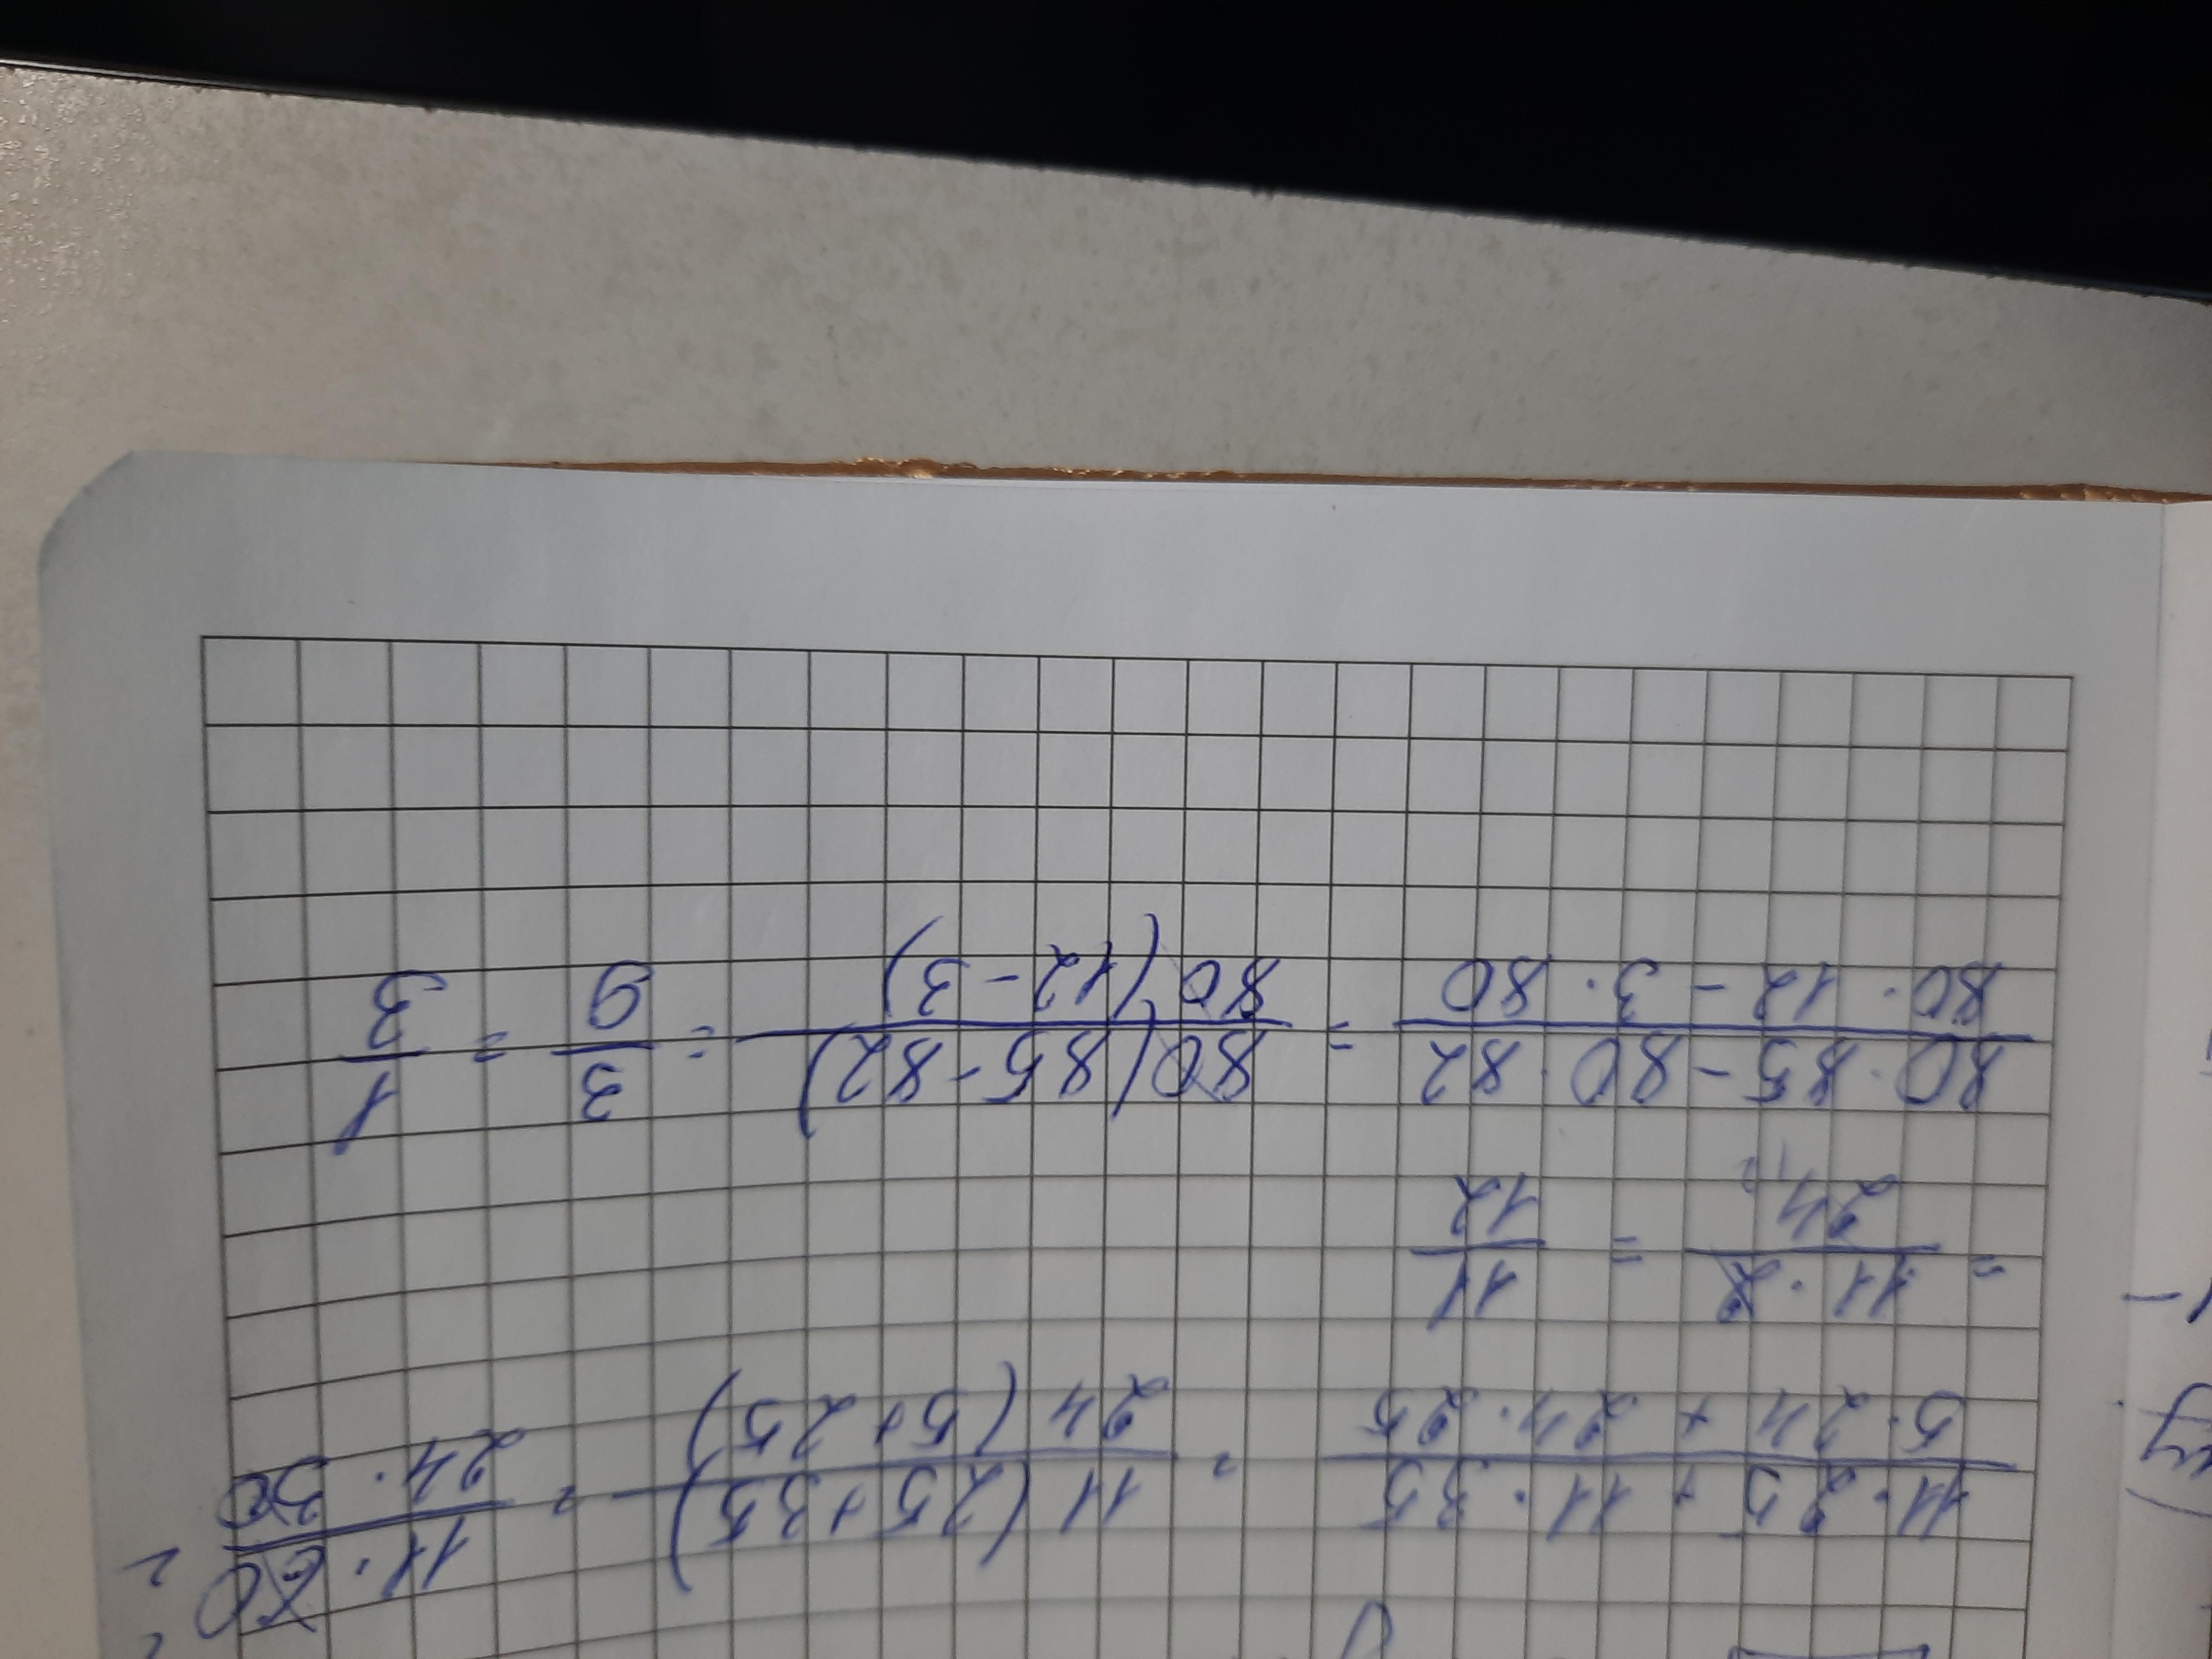 11·25+11·35 / 5·24+24·25 = 11(25+35) / 24(5+25) = 11·60 / 24·30
= 11·2 / 24 12 = 11 / 12
80·85-80·82 / 80·12-3·80 = 80(85-82) / 80(12-3) = 3 / 9 = 1 / 3